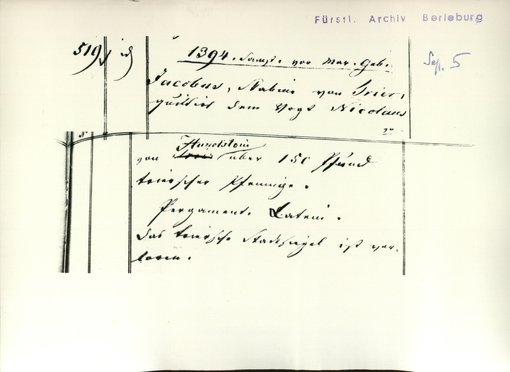 Fürstl. Archiv Berleburg
519 id
1394. Samst. vor Mar. Geb.
Sep. 5
Jacobus, Rabin von Trier,
quittirt dem Vogt Nicolaus
zu
Hundstein
von über 150 Pfund
trierscher Pfennige.
Pergament. Latein.
Das triersche Stadtsiegel ist ver-
loren.